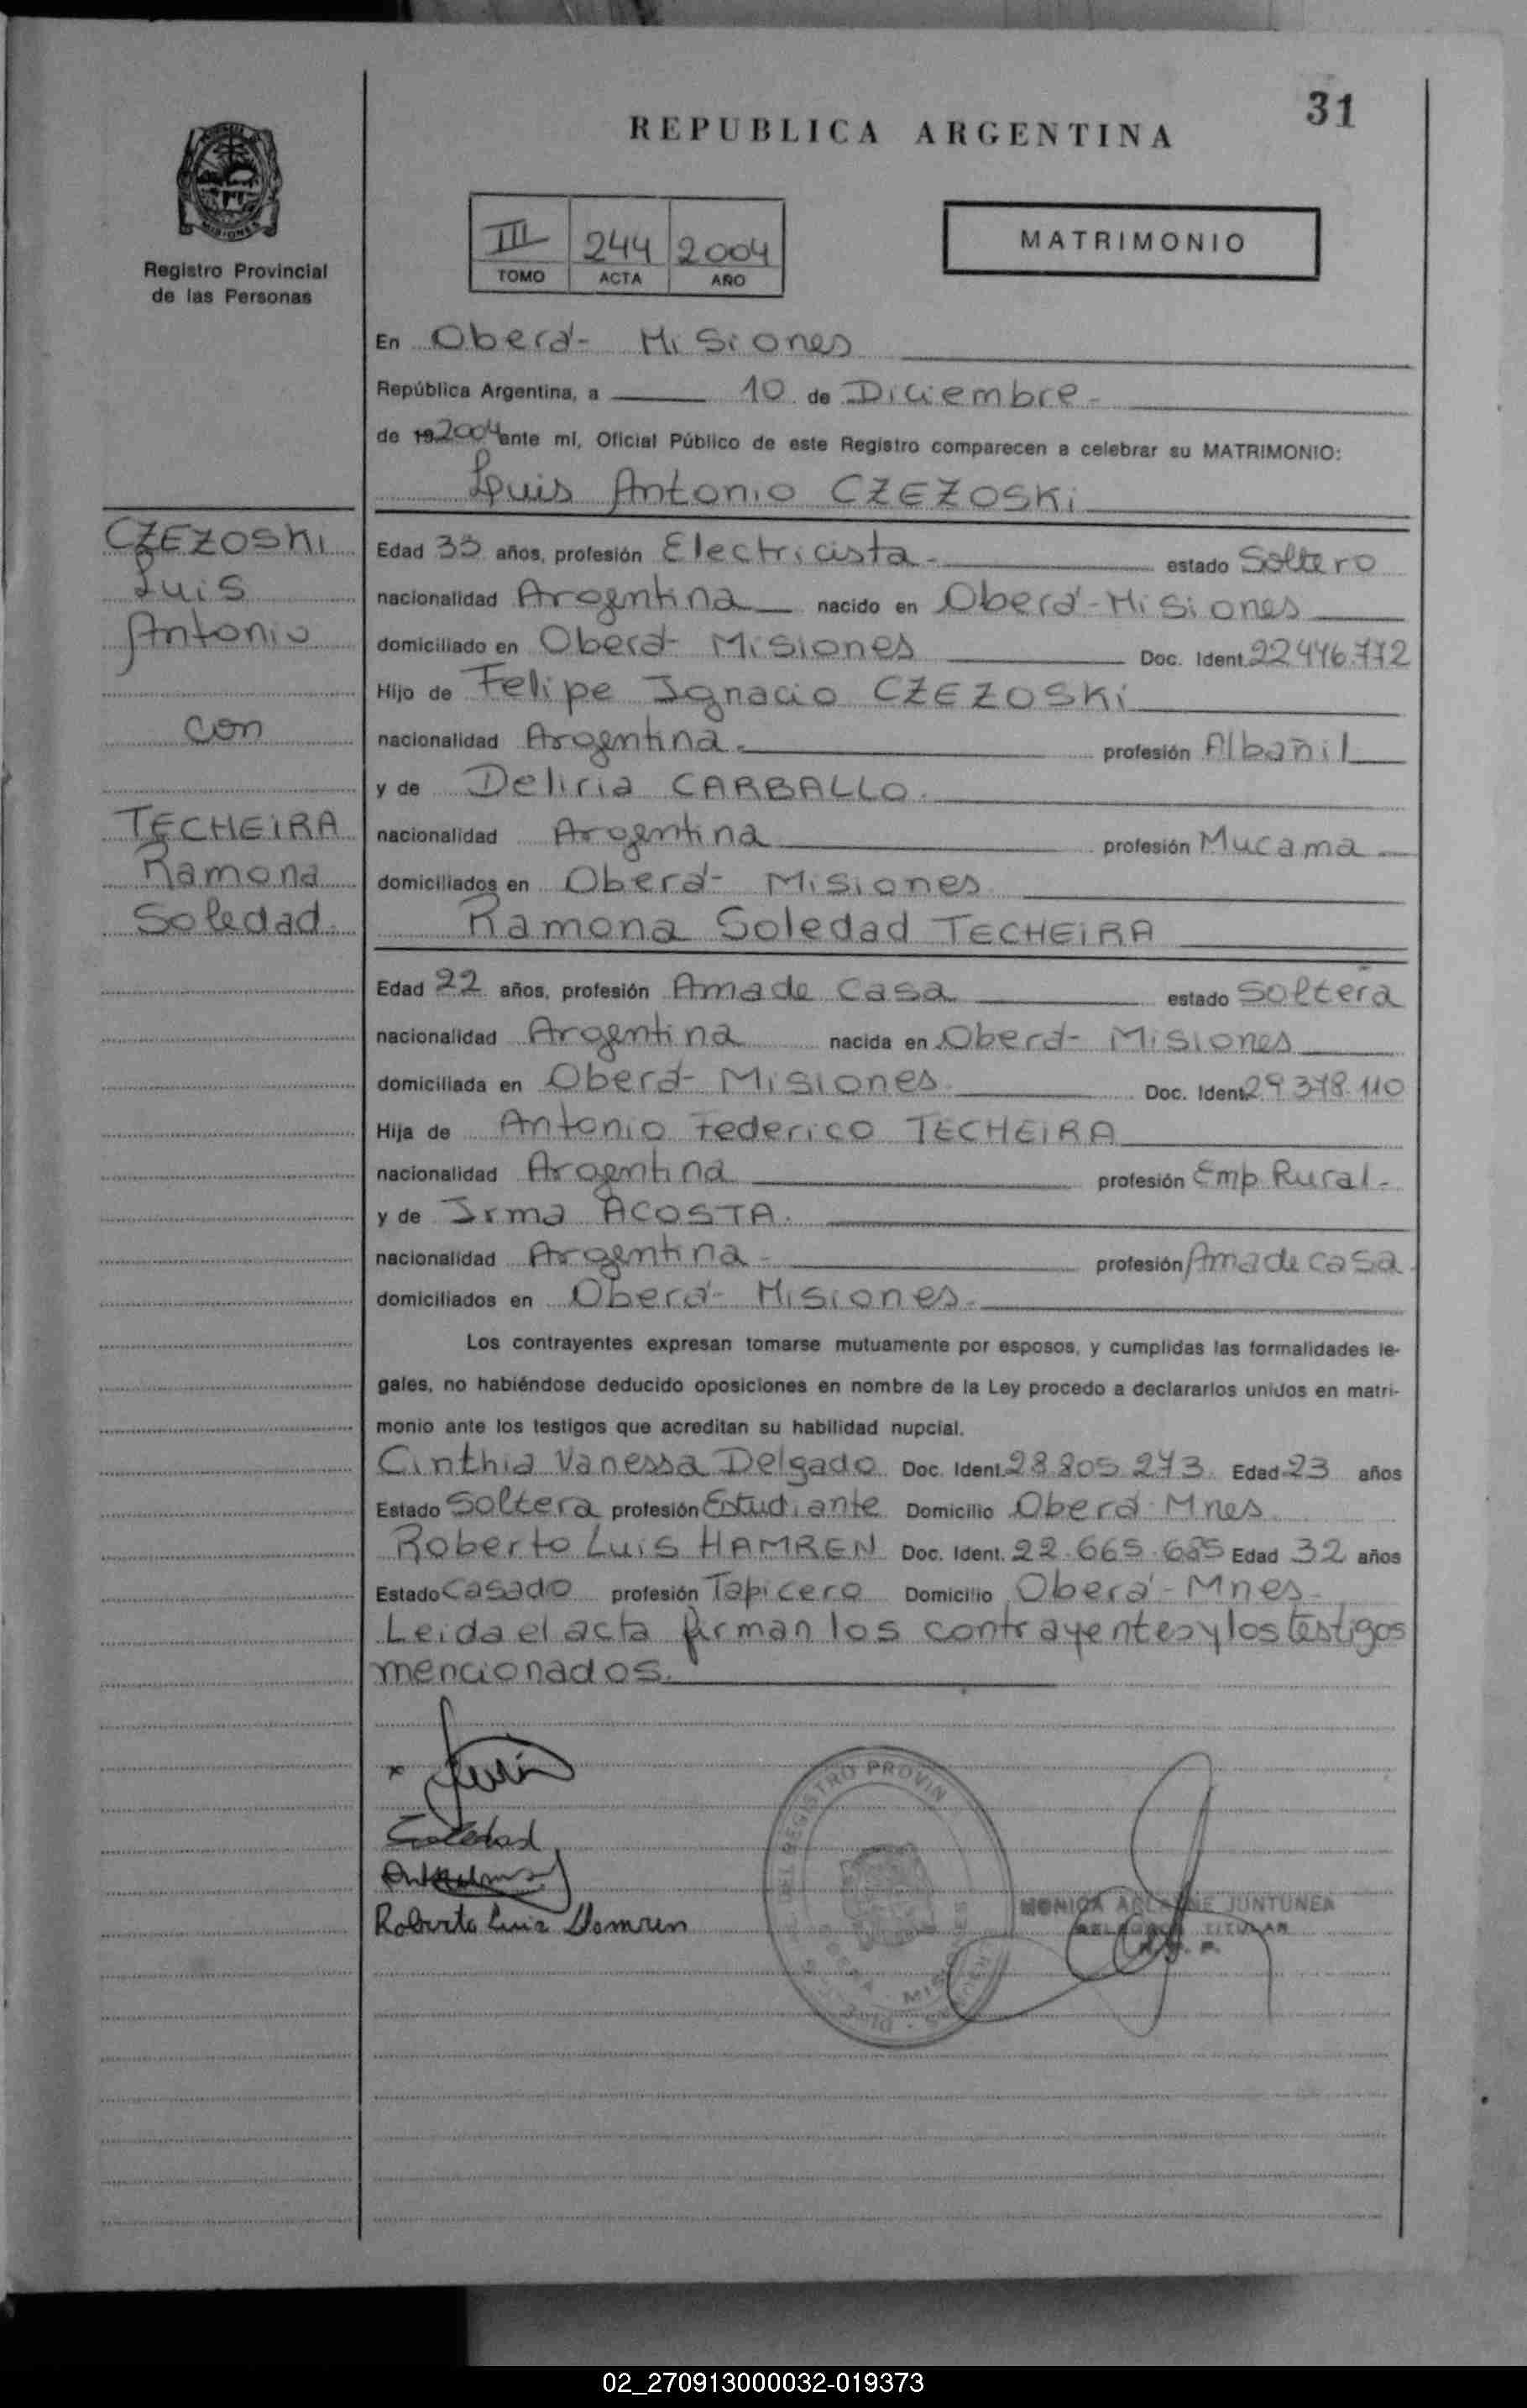 31
REPUBLICA ARGENTINA
MISIONES
Registro Provincial
de las Personas
III 244 2004
TOMO ACTA AÑO
MATRIMONIO
En Oberá- Misiones
República Argentina, a 10 de Diciembre-
de 192004 ante mí, Oficial Público de este Registro comparecen a celebrar su MATRIMONIO:
Luis Antonio CZEZOSKi
CZEZOSKI
Luis
Antonio
con
TECHEiRA
Ramona
Soledad
Edad 33 años, profesión Electricista- estado Soltero
nacionalidad Argentina nacido en Oberá-Misiones
domiciliado en Oberá- Misiones Doc. Ident. 22446.772
Hijo de Felipe Ignacio CZEZOSKi
nacionalidad Argentina- profesión Albañil
y de Deliria CARBALLO.
nacionalidad Argentina profesión Mucama
domiciliados en Oberá- Misiones
Ramona Soledad TECHEiRA
Edad 22 años, profesión Ama de Casa estado Soltera
nacionalidad Argentina nacida en Oberá- Misiones
domiciliada en Oberá- Misiones Doc. Ident. 29378.110
Hija de Antonio Federico TECHEiRA
nacionalidad Argentina profesión Emp Rural-
y de Irma ACOSTA.
nacionalidad Argentina- profesión Ama de casa.
domiciliados en Oberá- Misiones-
Los contrayentes expresan tomarse mutuamente por esposos, y cumplidas las formalidades le-
gales, no habiéndose deducido oposiciones en nombre de la Ley procedo a declararlos unidos en matri-
monio ante los testigos que acreditan su habilidad nupcial.
Cinthia Vanessa Delgado Doc. Ident. 28 805 273 Edad 23 años
Estado Soltera profesión Estudiante Domicilio Oberá- Mnes
Roberto Luis HAMREN Doc. Ident. 22.665.685 Edad 32 años
Estado Casado profesión Tapicero Domicilio Oberá-Mnes-
Leida el acta firman los contrayentes y los testigos
mencionados.
x Luis
Soledad
Roberto Luis Hamren
REGISTRO PROVIN
MONICA ARLENE JUNTUNEN
TITULAR
02_270913000032-019373